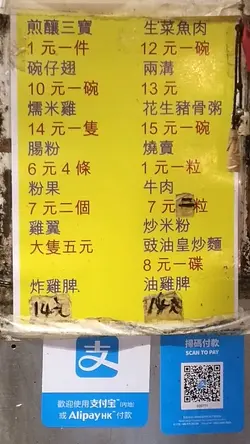 煎釀三寶
1元一件
碗仔翅
10元一碗
糯米雞
14元一隻
腸粉
6元4條
粉果
7元二個
雞翼
大隻五元
炸雞脾
14元
生菜魚肉
12元一碗
兩溝
13元
花生豬骨粥
15元一碗
燒賣
1元一粒
牛肉
7元二粒
炒米粉
豉油皇炒麵
8元一碟
油雞脾
14元
支
歡迎使用 支付宝™(内地)
或 AlipayHK™ 付款
掃碼付款
SCAN TO PAY